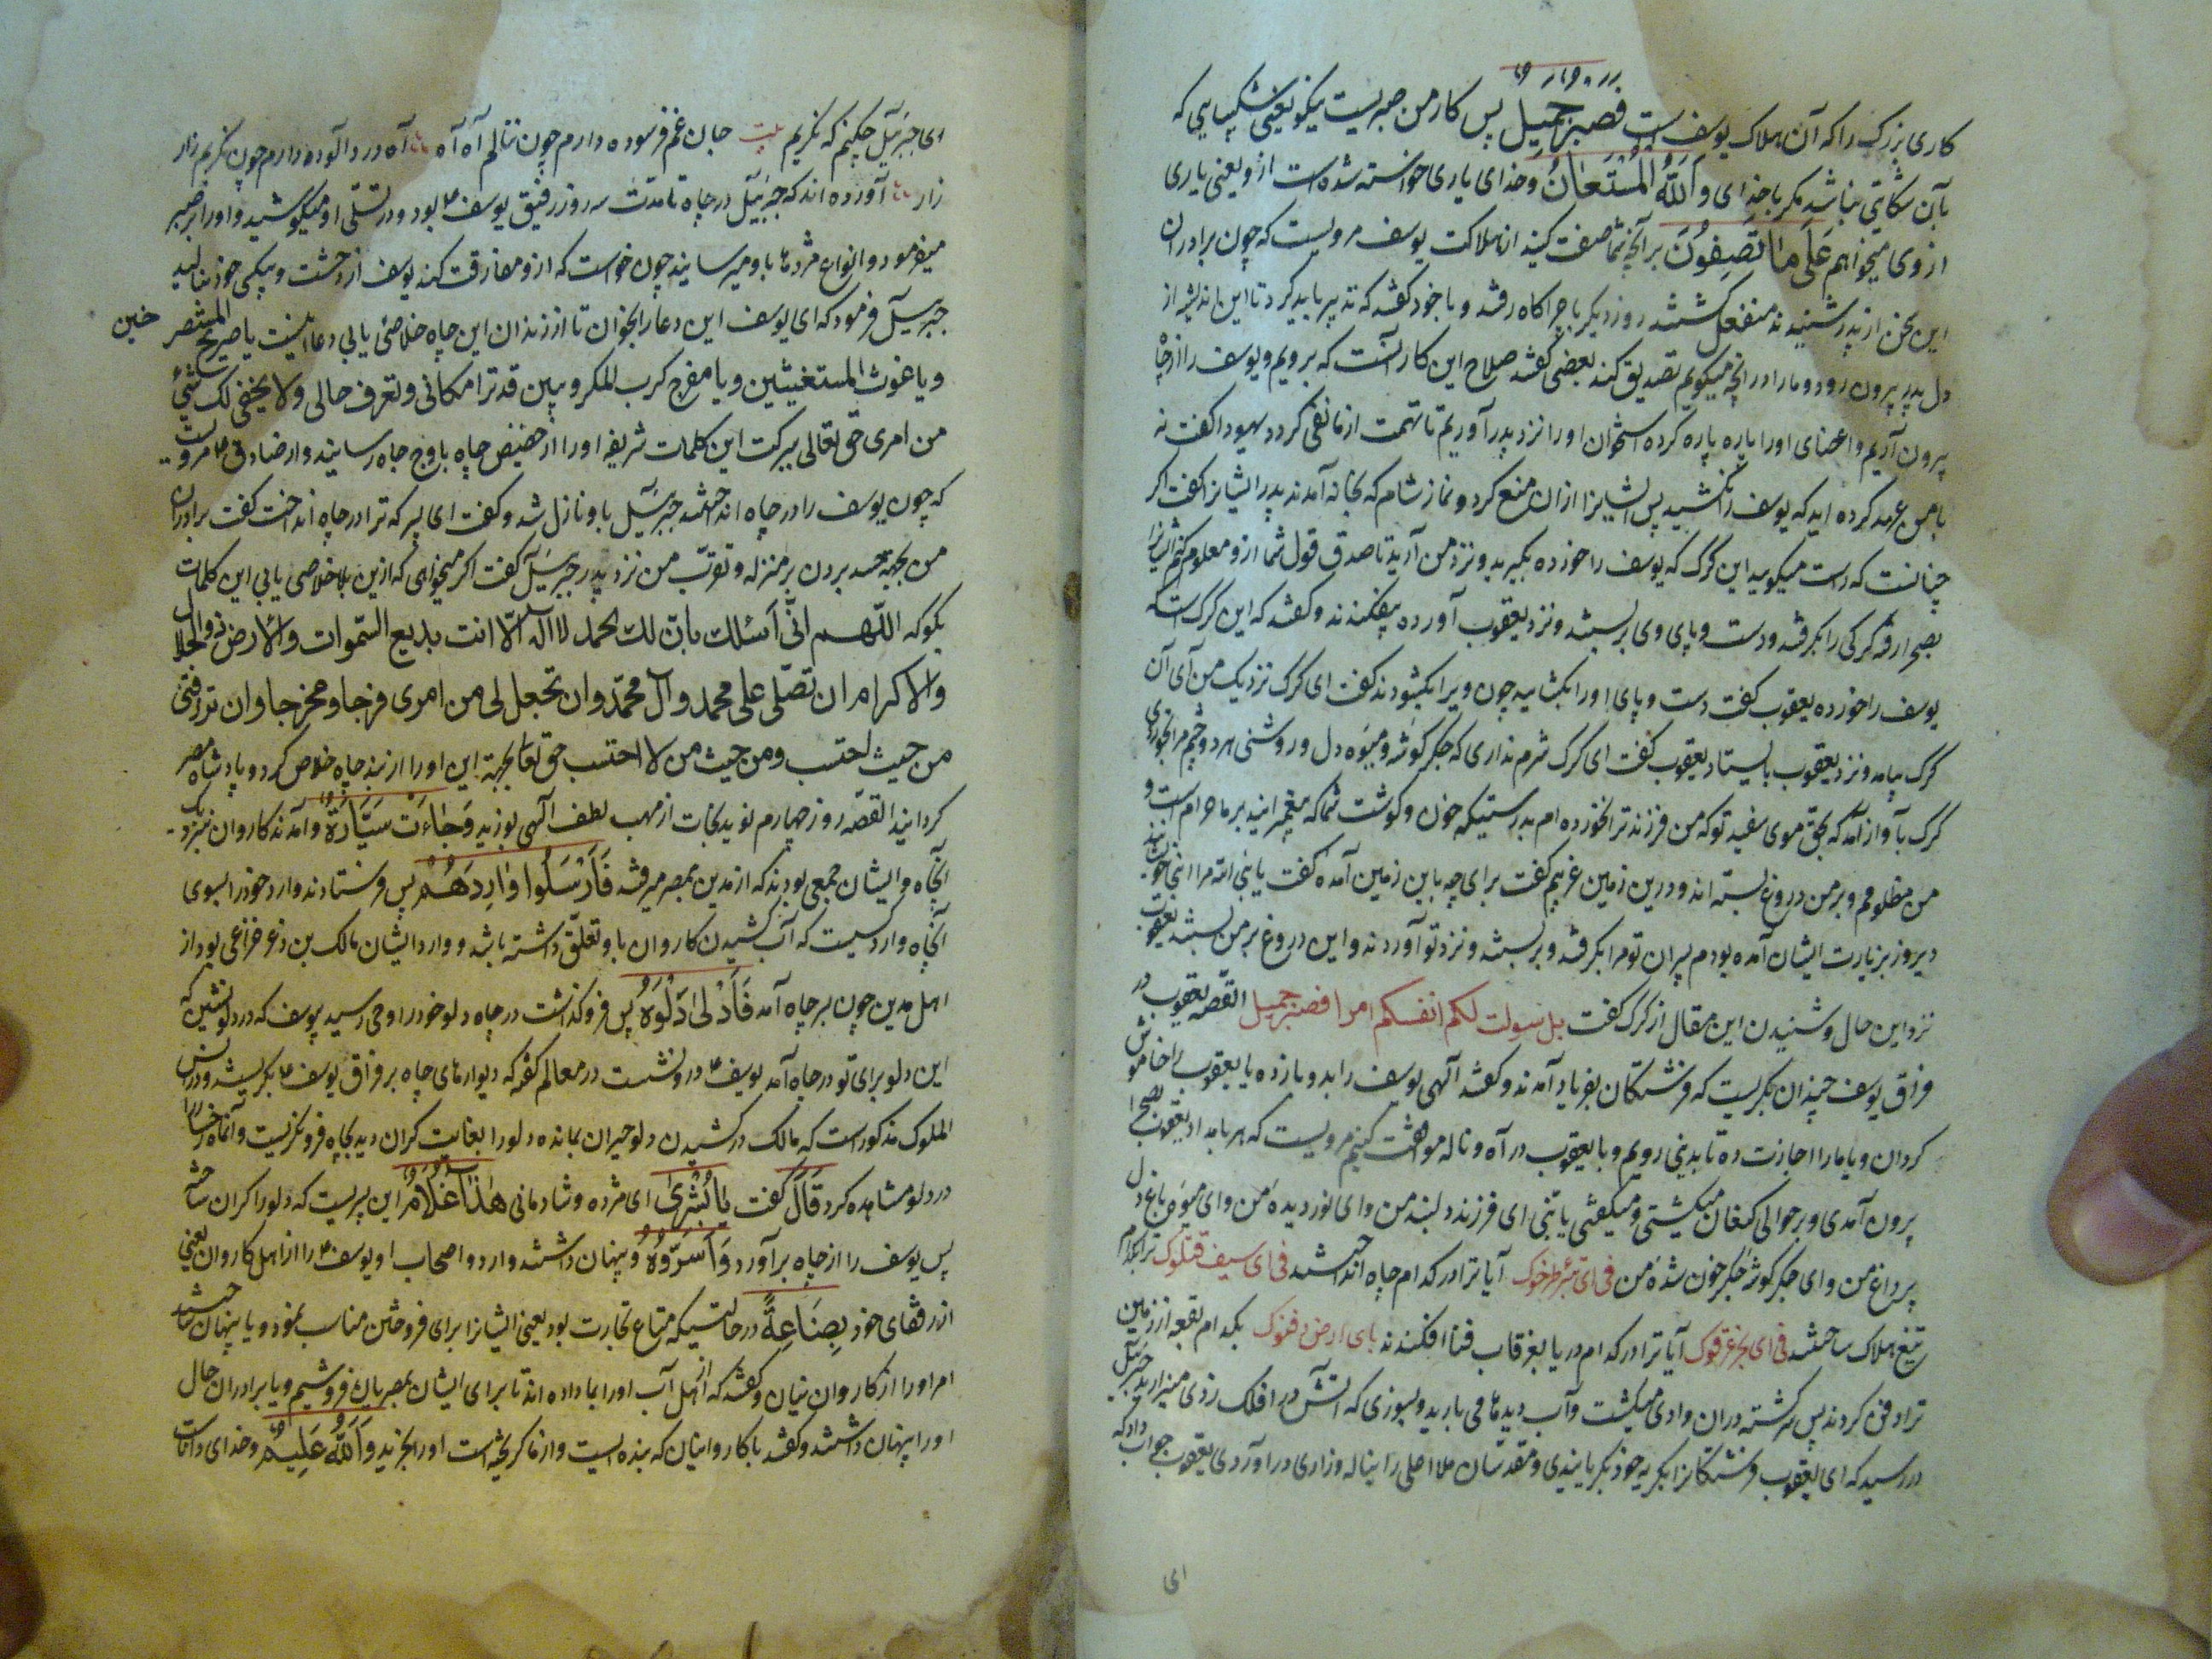 کاری بزرگ را که آن هلاک یوسف است فصبر جمیل پس کار من صبریست نیکو یعنی شکیبایی که
بآن شکایتی نباشد مگر با خدای و الله المستعان و خدای یاری خواسته شده است ازو یعنی یاری
از وی میخواهم علی ما تصفون بر آنچه شما صفت کنید از هلاکت یوسف مرویست که چون برادران
این سخن از پدر شنیدند منفعل گشتند روز دیگر با چراکاه رفتند و با خود گفتند که تدبیر باید کرد تا این اندیشه از
دل پدر بیرون رود و ما را در آنچه میگوییم تصدیق کند بعضی گفتند صلاح این کار آنست که برویم و یوسف را از چاه
بیرون آریم و اعضای او را پاره پاره کرده استخوان او را نزد پدر آوریم تا تهمت از ما نفی گردد یهودا گفت نه
با من عهد کرده اید که یوسف را نکشید پس ایشانرا از ان منع کرد و نماز شام که بخانه آمدند پدر ایشانرا گفت اگر
چنانست که راست میگویید این گرگ که یوسف را خورده بگیرید و نزد من آرید تا صدق قول شما ازو معلوم کنم ایشان
بصحرا رفته گرگی را بگرفتند و دست و پای وی بر بستند و نزد یعقوب آورده بیفکندند و گفتند که این گرگ است که
یوسف را خورده یعقوب گفت دست و پای او را بگشایید چون ویرا بگشودند گفت ای گرگ نزدیک من آی آن
گرگ بیامد و نزد یعقوب بایستاد یعقوب گفت ای گرگ شرم نداری که جگر گوشه و میوه دل و روشنی هر دو چشم مرا بخوردی
گرگ بآواز آمد که بحق موی سفید تو که من فرزند ترا نخورده ام بدرستیکه خون و گوشت شما که پیغمبرانید بر ما حرام است و
من مظلومم و بر من دروغ بسته اند و درین زمین غریبم گفت برای چه باین زمین آمده گفت یا نبی الله مرا اینجا خویشانند
دیروز بزیارت ایشان آمده بودم پسران تو مرا بگرفتند و بر بستند و نزد تو آوردند و این دروغ بر من بستند یعقوب
نزد این حال و شنیدن این مقال از گرگ گفت بل سولت لکم انفسکم امرا فصبر جمیل القصه یعقوب در
فراق یوسف چندان بگریست که فرشتگان بفریاد آمدند و گفتند الهی یوسف را بدو باز ده یا یعقوب را خاموش
گردان و یا ما را اجازت ده تا بدنیا رویم و با یعقوب در آه و ناله موافقت کنیم مرویست که هر بامداد یعقوب بصحرا
بیرون آمدی و بر حوالی کنعان میگشتی و میگفتی یا بنی ای فرزند دلبند من و ای نور دیده من و ای میوه باغ دل
پر داغ من و ای جگر گوشه جگر خون شده من فی ای بئر طرحوک آیا ترا در کدام چاه انداختند فی ای سیف قتلوک ترا بکدام
تیغ هلاک ساختند فی ای بحر غرقوک آیا ترا در کدام دریا بغرقاب فنا افکندند بای ارض دفنوک بکدام بقعه از زمین
ترا دفن کردند پس سرگشته دران وادی میگشت و آب دیدها می بارید و بسوزی که آتش در افلاک زدی میزارید جبرئیل
در رسید که ای یعقوب فرشتگانرا بگریه خود بگریانیدی و مقدسان ملا اعلی را بناله و زاری در آوردی یعقوب جواب داد که
ای
ای جبرئیل چکنم که نگریم بیت جان غم فرسوده دارم چون ننالم آه آه آه درد آلوده دارم چون نگریم زار
زار آورده اند که جبرئیل در چاه تا مدت سه روز رفیق یوسف بود و در تسلی او میکوشید و او را بر صبر
میفرمود و انواع مژدها باو میرسانید چون خواست که ازو مفارقت کند یوسف از وحشت و بیکسی خود بنالید
جبرئیل فرمود که ای یوسف این دعا را بخوان تا از زندان این چاه خلاصی یابی دعا اینست یا صریخ المستصر
خین
و یا غوث المستغیثین و یا مفرج کرب المکروبین قد تری مکانی و تعرف حالی ولا یخفی لک شیء
من امری حق تعالی ببرکت این کلمات شریفه او را از حضیض چاه باوج جاه رسانید و از صادق مرویست
که چون یوسف را در چاه انداختند جبرئیل باو نازل شد و گفت ای پسر که ترا در چاه انداخت گفت برادران
من بجهة حسد بردن بر منزله و تقرب من نزد پدر جبرئیل گفت اگر میخواهی که ازین بلا خلاصی یابی این کلمات
بگو که اللهم انی اسئلک بان لک الحمد لا اله الا انت بدیع السموات والارض ذو الجلال
والاکرام ان تصلی علی محمد وآل محمد وان تجعل لی من امری فرجا ومخرجا وان ترزقنی
من حیث احتسب ومن حیث من لا احتسب حق تعالی بجهة این او را از بند چاه خلاص کرد و پادشاه مصر
گردانید القصه روز چهارم نوید نجات از مهب لطف الهی بوزید وجاءت سیارة و آمدند کاروان نزدیک
آنچاه و ایشان جمعی بودند که از مدین بمصر میرفتند فارسلوا واردهم پس فرستادند وارد خود را بسوی
آنچاه وارد کسیست که آب کشیدن کاروان باو تعلق داشته باشد و وارد ایشان مالک بن ذعر خزاعی بود از
اهل مدین چون بسر چاه آمد فادلی دلوه پس فرو گذاشت در چاه دلو خود را وحی رسید بیوسف که در دلو نشین که
این دلو برای تو در چاه آمد یوسف در و نشست در معالم گفته که دیوارهای چاه بر فراق یوسف بگریستند و در
الملوک مذکور است که مالک در کشیدن دلو حیران بمانده دلو را بغایت گران دید بچاه فرو نگریست و آنماه رخسار را
در دلو مشاهده کرد قال گفت یا بشری ای مژده و شادمانی هذا غلام این پسریست که دلو را گران ساخته
پس یوسف را از چاه برآورد و اسروه و پنهان داشتند وارد و اصحاب او یوسف را از اهل کاروان یعنی
از رفقای خود بضاعة در حالتیکه متاع تجارت بود یعنی ایشانرا برای فروختن مناسب نمود و یا پنهان ساختند
امر او را از کاروانیان و گفتند که اهل آب او را بما داده اند تا برای ایشان بمصریان فروشیم و یا برادران حال
او را پنهان داشتند و گفتند با کاروانیان که بنده ایست و از ما گریخته است او را بخرید و الله علیم و خدای داناست